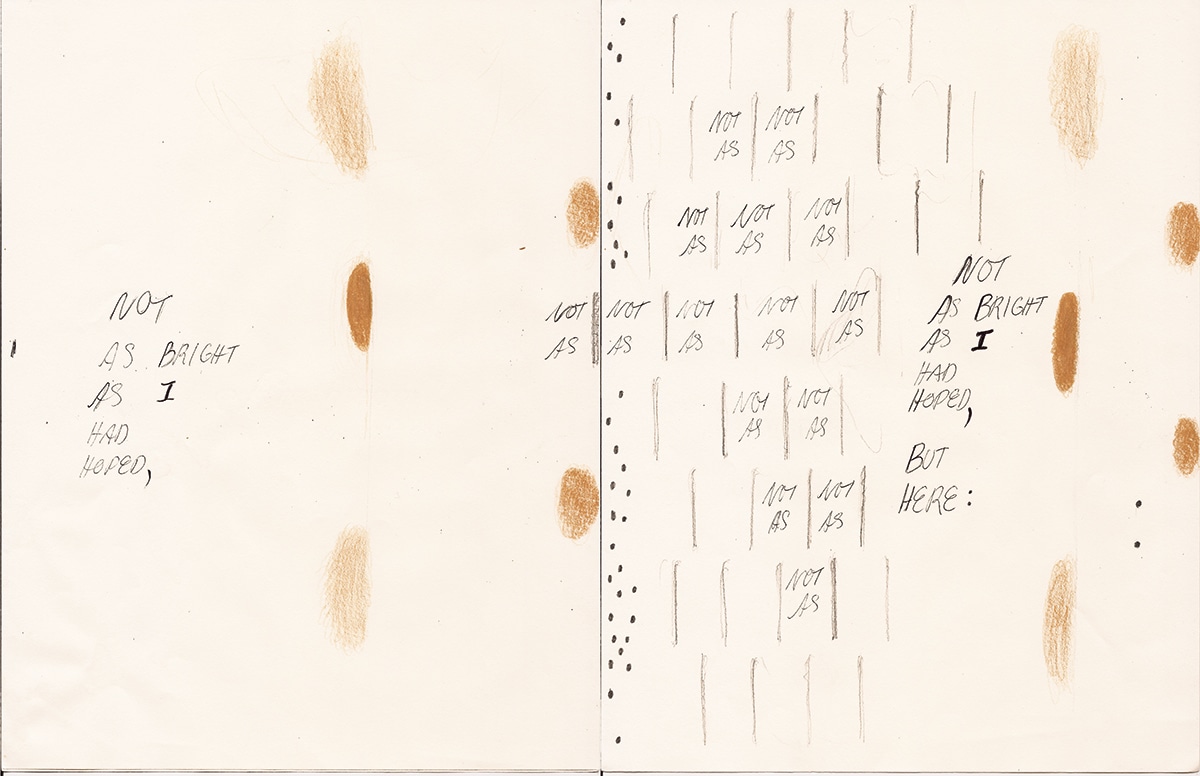 NOT
AS BRIGHT
AS I
HAD
HOPED,
NOT NOT
AS AS
NOT NOT NOT
AS AS AS
NOT NOT NOT NOT NOT
AS AS AS AS AS
NOT NOT
AS AS
NOT NOT
AS AS
NOT
AS
NOT
AS BRIGHT
AS I
HAD
HOPED,
BUT
HERE: